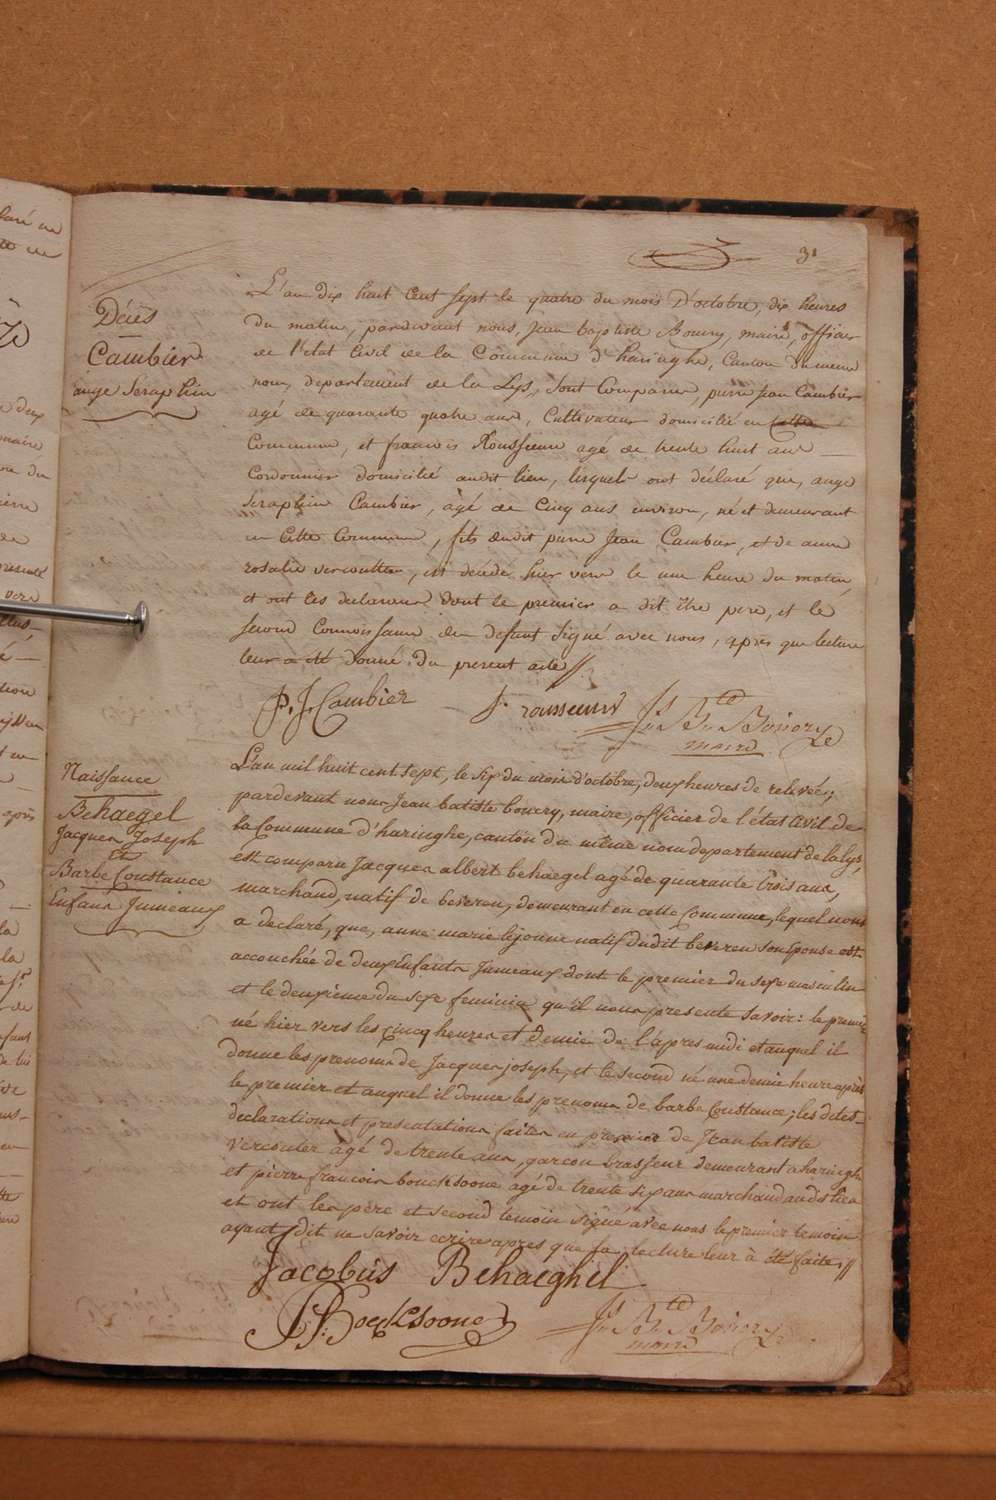 31
Décès
Cambier
ange Seraphin
L'an dix huit Cent Sept le quatre du mois D'octobre, dix heures
Du matin, pardevant nous, Jean Baptiste Boury, maire, officier
de l'état Civil de la Commune d'haringhe, Canton du meme
nom, departement de la Lys, Sont Comparu, pierre Jean Cambier
agé de quarante quatre ans, Cultivateur domicilié en Cette
Commune, et francois Rousseeuw agé de trente huit ans
Cordonnier domicilié audit lieu, lesquels ont déclaré que, ange
Seraphin Cambier, âgé de Cinq ans environ, né et demeurant
en Cette Commune, fils dudit pierre Jean Cambier, et de anne
rosalie vercoutter, est décédé hier vers le une heure du matin,
et ont les declarans dont le premier a dit être pere, et le
second Connoissance du defunt Signé avec nous, après que lecture
leur a été donné du present acte //.
P. J. Cambier f. rousseeuw Jn Bte Boury
maire
Naissance
Behaegel
Jacques Joseph
et
Barbe Constance
Enfans Jumeaux
L'an mil huit cent sept, le six du mois d'octobre, deux heures de relevée,
pardevant nous Jean batiste boury, maire, officier de l'état civil de
la Commune d'haringhe, canton du même nom departement de la lys,
est comparu Jacques albert behaegel agé de quarante trois ans,
marchand, natif de beveren, demeurant en cette Commune, lequel nous
a declaré, que, anne marie lejonne natif dudit beveren son Epouse est
accouchée de deux Enfants Jumeaux dont le premier du sexe masculin
et le deuxième du sexe feminin qu'il nous presente savoir: le premier
né hier vers les cincq heures et demie de l'après midi et auquel il
donne les prenoms de Jacques joseph, et le second né une demie heure après
le premier et auquel il donne les prenoms de barbe Constance; les dites
declarations et presentations faites en presence de Jean batiste
Vercouter âgé de trente ans, garçon brasseur demeurant a haringhe
et pierre francois boucksoone agé de trente six ans marchand audit lieu
et ont les père et second temoin signé avec nous le premier temoin
ayant dit ne savoir ecrire apres que la lecture leur à été faite //
Jacobus Behaeghel
P: f: Boucksoone Jn Bte Boury
maire